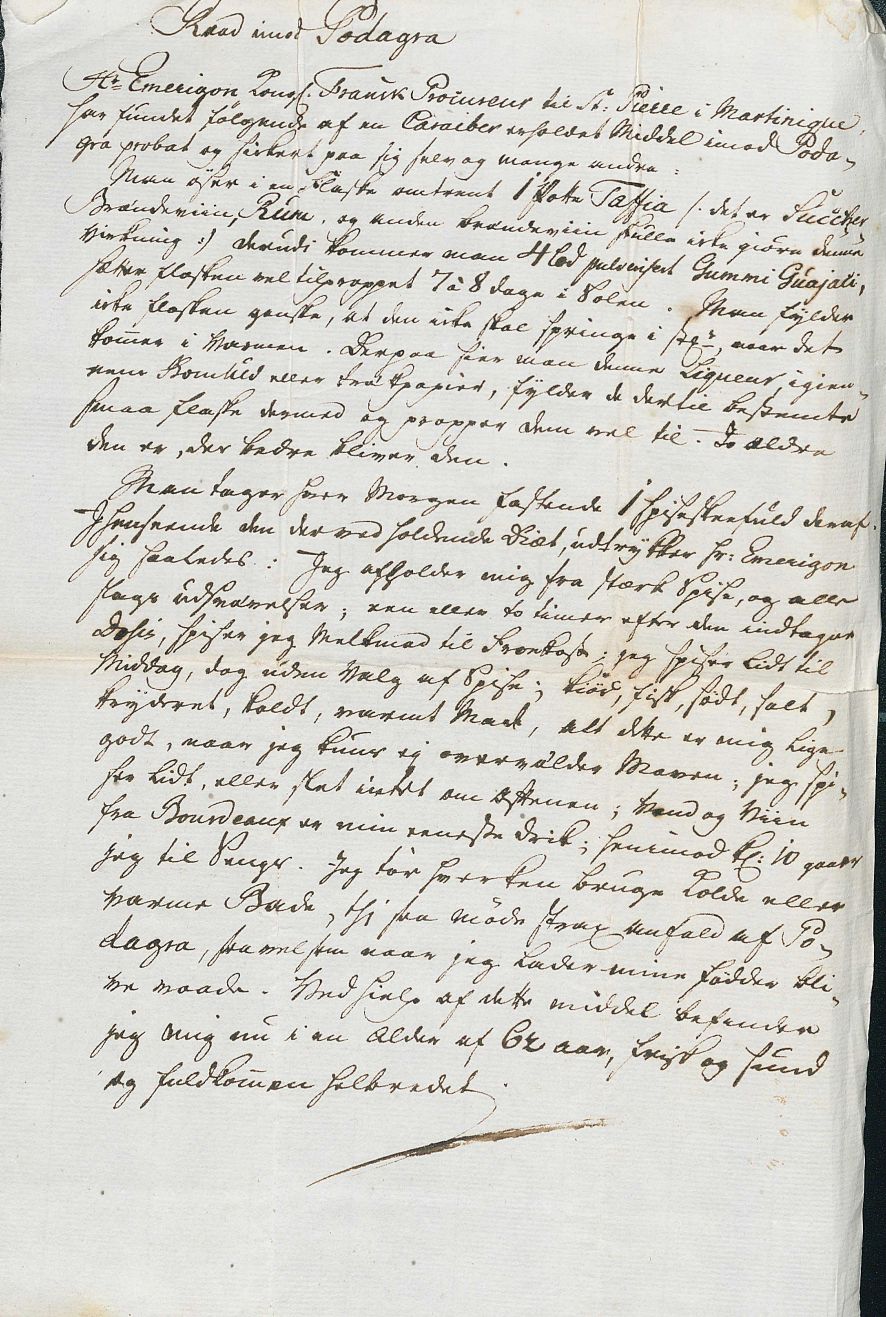 Raad imod Podagra
Hr. Emerigon Kongl. Fransk Procureur til St: Pierre i Martinique,
har fundet følgende af en Caraiber erholdet Middel imod Poda-
gra probat og sikkert paa sig selv og mange andre:
Man øser i en Flaske omtrent 1 Potte Taffia /: det er Sucker
Brændeviin, Rum, og anden brændeviin skulle ikke giøre denne
Virkning :/ derudi kommer man 4 Lod pulveriseret Gummi Guajaci,
sætter flasken vel tilproppet 7 à 8 dage i Solen. Man fylder
ikke flasken ganske, at den ikke skal springe i , naar det
kommer i Varmen. Derpaa sier man denne Liqueur igien-
nem Bomuld eller trækpapir, fylder de dertil bestemte
smaa flaske dermed og propper dem vel til. Jo ældre
den er, des bedre bliver den.
Man tager hver Morgen fastende 1 Spiseskeefuld deraf.
I henseende den derved holdende Diæt, udtrykker hr: Emerigon
sig saaledes: Jeg afholder mig fra stærk Spise, og alle
slags udsvævelser; een eller to timer efter den indtagne
Dosis, spiser jeg Melkmad til Frokost; jeg spiser Lidt til
Middag, dog uden Valg af Spise; kiød, fisk, sødt, salt,
krydret, koldt, varmt Mad, alt dette er mig Lige-
godt, naar jeg kuns ej overvælder Maven; jeg spi-
ser Lidt, eller slet intet om Aftenen; Vand og Viin
fra Bourdeaux er min eeneste drik; henimod kl: 10 gaaer
jeg til Sengs. Jeg tør hverken bruge kolde eller
varme Bade, thi saa møde strax anfald af Po-
dagra, saavelsom naar jeg Lader mine fødder bli-
ve vaade. Ved hielp af dette middel befinder
jeg mig nu i en Alder af 62 aar, frisk og sund
og fuldkommen helbredet.